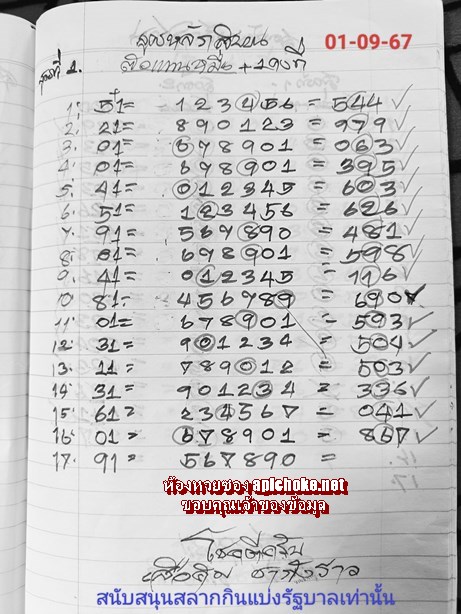 สูตรหลักสิบบน
01-09-67
สูตรที่ 1.
1: 51= 123456 = 544 ✓
2: 21= 890123 = 979 ✓
3: 01= 678901 = 063 ✓
4: 01= 678901 = 395 ✓
5: 41= 012345 = 603 ✓
6: 51= 123456 = 626 ✓
7: 91= 567890 = 481 ✓
8: 01= 678901 = 598 ✓
9: 41= 012345 = 116 ✓
10 81= 456789 = 690 ✓
11: 01= 678901 = 593 ✓
12: 31= 901234 = 504 ✓
13: 11= 789012 = 503 ✓
14: 31= 901234 = 336 ✓
15: 61= 234567 = 041 ✓
16: 01= 678901 = 867 ✓
17: 91= 567890 =
ห้องหวยซอง aplchoke.net
ขอบคุณเจ้าของข้อมูล
โชคดีครับ
สนับสนุนสลากกินแบ่งรัฐบาลเท่านั้น